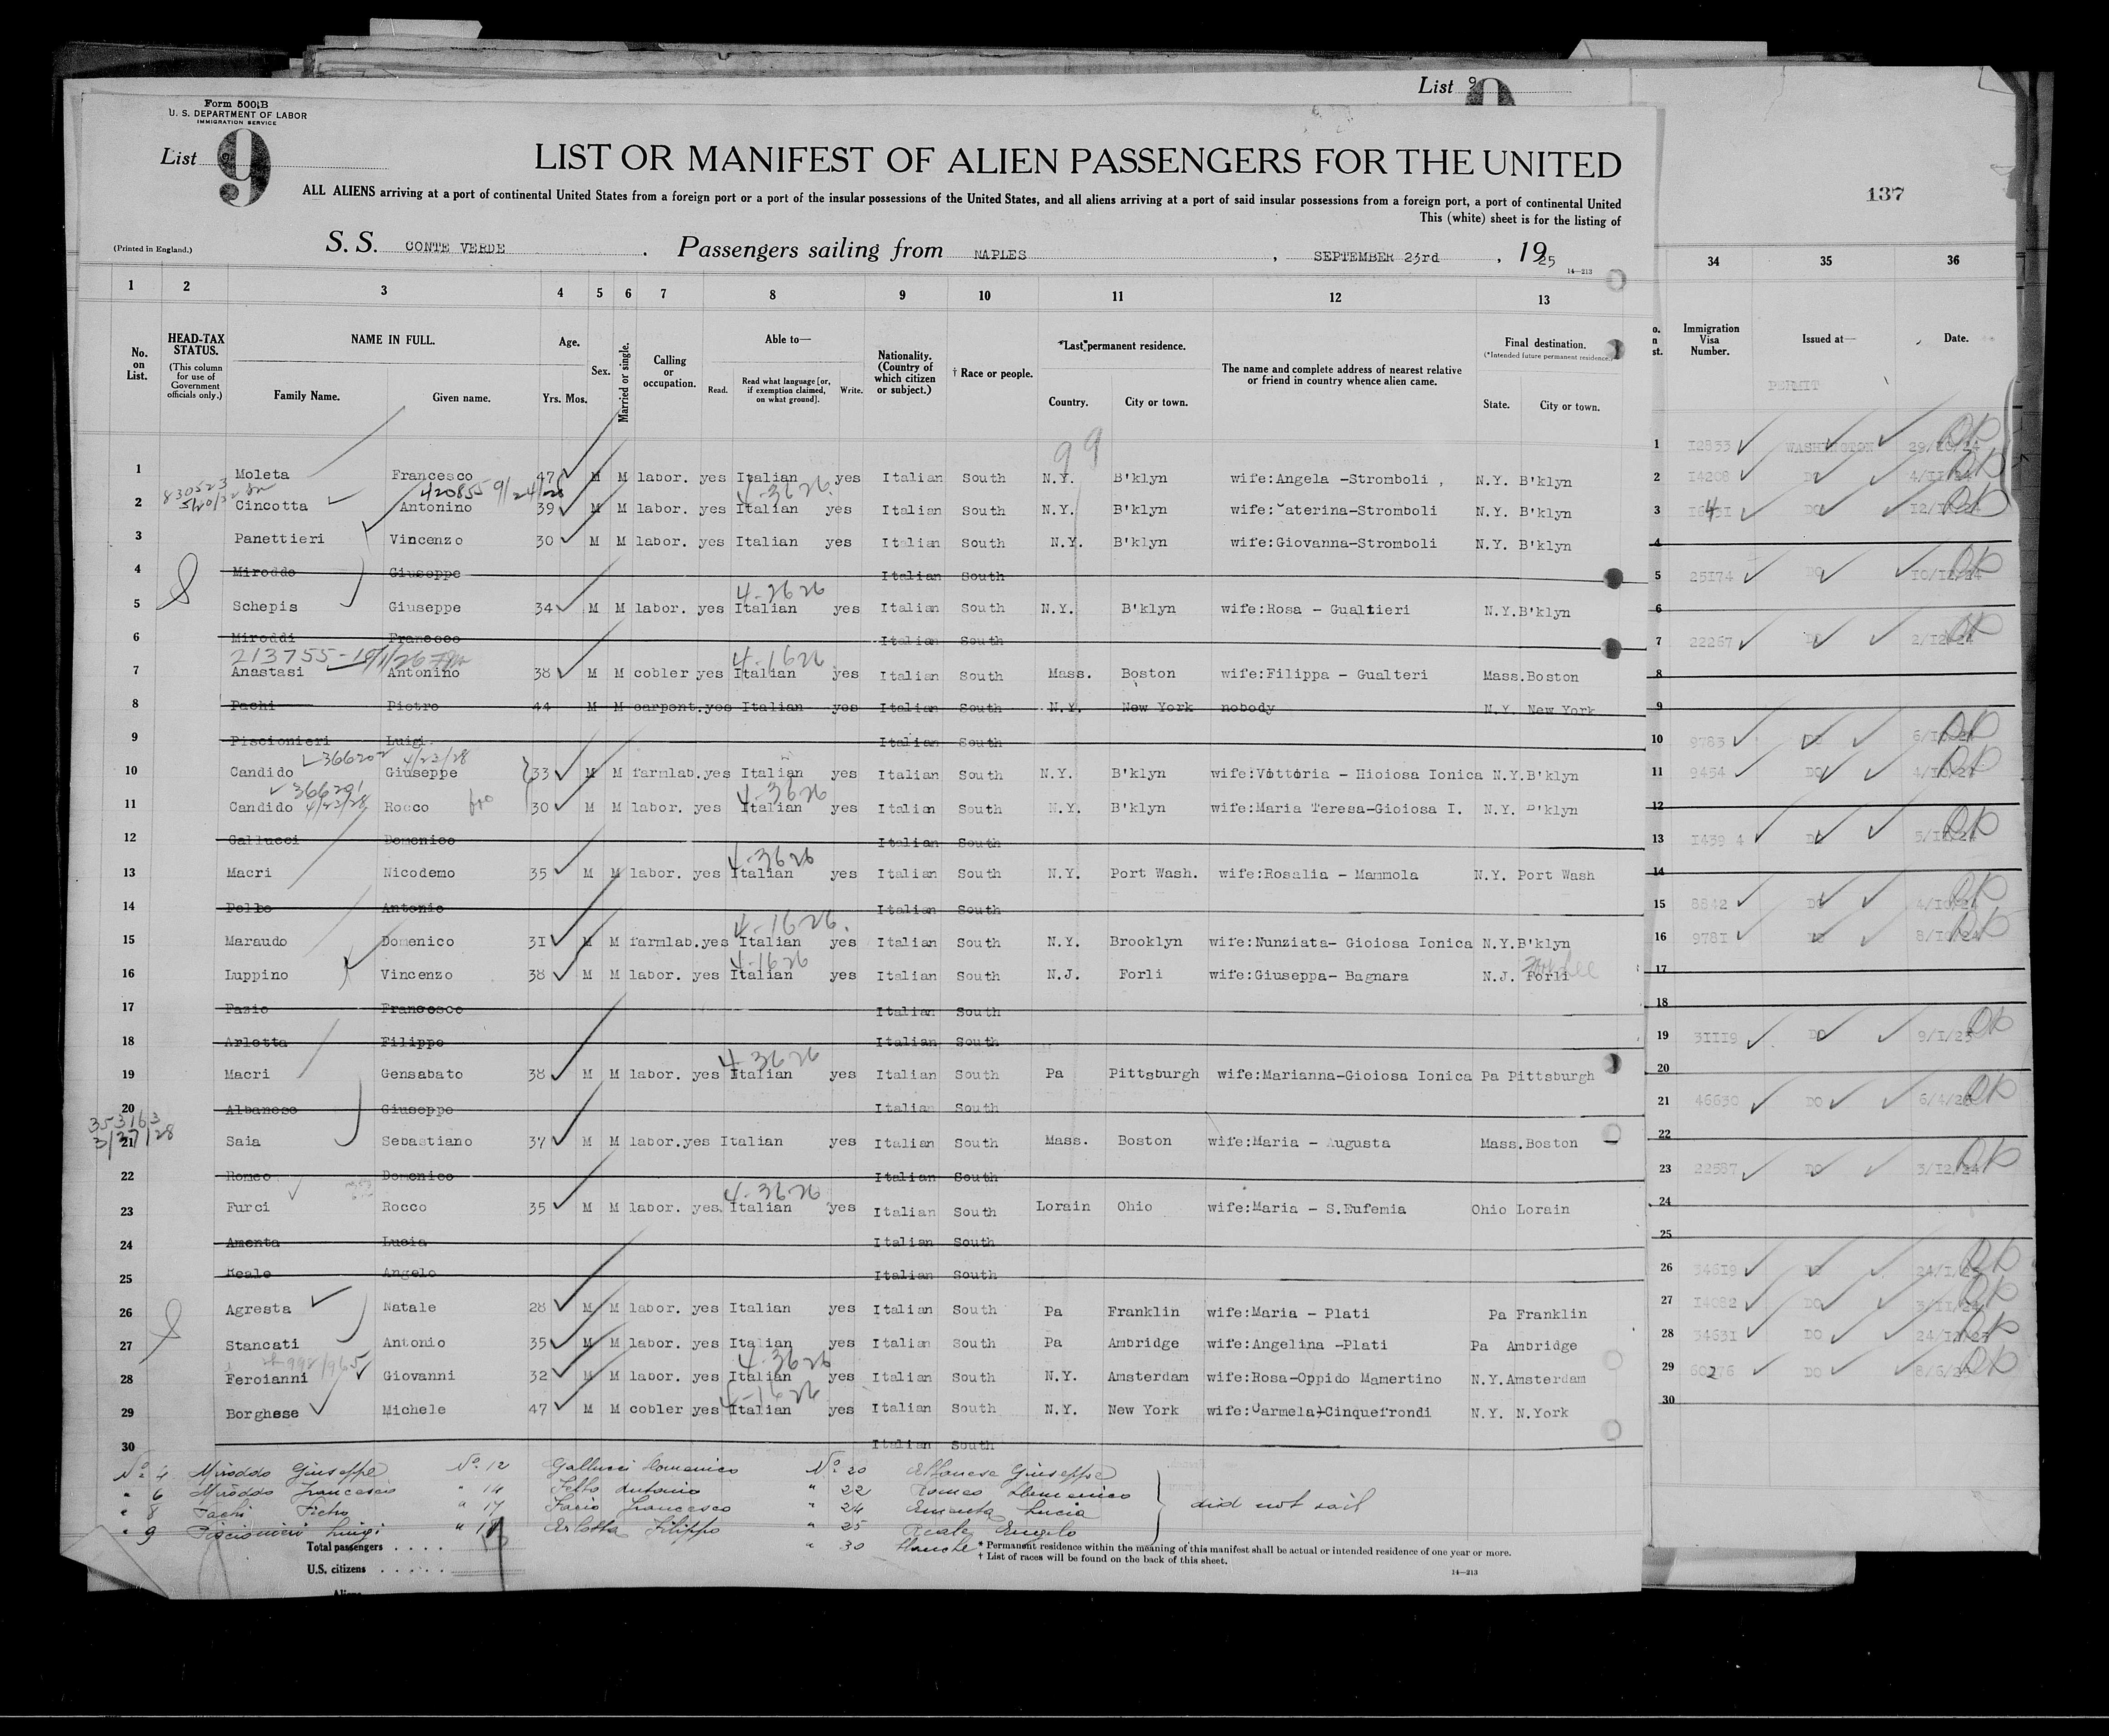 List 9
Form 500 B
U. S. DEPARTMENT OF LABOR
IMMIGRATION SERVICE
List 9
LIST OR MANIFEST OF ALIEN PASSENGERS FOR THE UNITED
137
ALL ALIENS arriving at a port of continental United States from a foreign port or a port of the insular possessions of the United States, and all aliens arriving at a port of said insular possessions from a foreign port, a port of continental United
This (white) sheet is for the listing of
(Printed in England.)
S. S. CONTE VERDE . Passengers sailing from NAPLES , SEPTEMBER 23rd , 1925
14—213
1 2 3 4 5 6 7 8 9 10 11 12 13 34 35 36
No. on List.
HEAD-TAX STATUS.
(This column for use of Government officials only.)
NAME IN FULL.
Family Name. Given name.
Age.
Yrs. Mos.
Sex.
Married or single.
Calling or occupation.
Able to—
Read. Read what language [or, if exemption claimed, on what ground]. Write.
Nationality. (Country of which citizen or subject.)
† Race or people.
*Last permanent residence.
Country. City or town.
The name and complete address of nearest relative or friend in country whence alien came.
Final destination.
(*Intended future permanent residence.)
State. City or town.
Immigration Visa Number.
Issued at—
Date.
PERMIT
99
1 Moleta Francesco 47 M M labor. yes Italian yes Italian South N.Y. B'klyn wife:Angela -Stromboli , N.Y. B'klyn 1 12833 WASHINGTON OK
830523 420855 9/24/28 4-3626
2 Cincotta Antonino 39 M M labor. yes Italian yes Italian South N.Y. B'klyn wife:Caterina-Stromboli N.Y. B'klyn 2 14208 DO 4/11/24 OK
3 Panettieri Vincenzo 30 M M labor. yes Italian yes Italian South N.Y. B'klyn wife:Giovanna-Stromboli N.Y. B'klyn 3 DO OK
4 Miroddo Giuseppe Italian South 4
4-3626
5 Schepis Giuseppe 34 M M labor. yes Italian yes Italian South N.Y. B'klyn wife:Rosa - Gualtieri N.Y.B'klyn 5 25174 DO 10/12/24 OK
6 Miroddi Francesco Italian South 6
213755 4-1626
7 Anastasi Antonino 38 M M cobler yes Italian yes Italian South Mass. Boston wife:Filippa - Gualteri Mass.Boston 7 22267 DO 2/12/24 OK
8 Pachi Pietro 44 M M carpent.yes Italian yes Italian South N.Y. New York nobody N.Y. New York 8
9 Piscionieri Luigi Italian South 9
366202 4/23/28
10 Candido Giuseppe 33 M M farmlab.yes Italian yes Italian South N.Y. B'klyn wife:Vittoria - Hioiosa Ionica N.Y.B'klyn 10 9783 DO OK
366201 4/23/28 4-3626
11 Candido Rocco 30 M M labor. yes Italian yes Italian South N.Y. B'klyn wife:Maria Teresa-Gioiosa I. N.Y. B'klyn 11 9454 DO OK
12 Gallucci Domenico Italian South 12
4-3626
13 Macri Nicodemo 35 M M labor. yes Italian yes Italian South N.Y. Port Wash. wife:Rosalia - Mammola N.Y. Port Wash 13 1439 4 DO OK
14 Antonio Italian South 14
4-1626.
15 Maraudo Domenico 31 M M farmlab.yes Italian yes Italian South N.Y. Brooklyn wife:Nunziata- Gioiosa Ionica N.Y.B'klyn 15 8842 DO 4/10/24 OK
4-1626
16 Luppino Vincenzo 38 M M labor. yes Italian yes Italian South N.J. Forli wife:Giuseppa- Bagnara N.J. Forli 16 9781 DO 8/10/24 OK
17 Fazio Francesco Italian South 17
18 Arlotta Filippo Italian South 18
4-3626
19 Macri Gensabato 38 M M labor. yes Italian yes Italian South Pa Pittsburgh wife:Marianna-Gioiosa Ionica Pa Pittsburgh 19 31119 DO 9/1/25 OK
20 Albanese Giuseppe Italian South 20
353163 3/27/28
21 Saia Sebastiano 37 M M labor.yes Italian yes Italian South Mass. Boston wife:Maria - Augusta Mass.Boston 21 46630 DO OK
22 Romeo Domenico Italian South 22
4-3626
23 Furci Rocco 35 M M labor. yes. Italian yes Italian South Lorain Ohio wife:Maria - S.Eufemia Ohio Lorain 23 22587 DO 3/12/24 OK
24 Amenta Lucia Italian South 24
25 Reale Angelo Italian South 25
26 Agresta Natale 28 M M labor. yes Italian yes Italian South Pa Franklin wife:Maria - Plati Pa Franklin 26 34619 DO 24/1/25 OK
27 Stancati Antonio 35 M M labor. yes Italian yes Italian South Pa Ambridge wife:Angelina -Plati Pa Ambridge 27 14082 DO 3/11/24 OK
4-3626
28 Feroianni Giovanni 32 M M labor. yes Italian yes Italian South N.Y. Amsterdam wife:Rosa-Oppido Mamertino N.Y.Amsterdam 28 34631 DO OK
4-1626
29 Borghese Michele 47 M M cobler yes Italian yes Italian South N.Y. New York wife:Carmela-Cinquefrondi N.Y. N.York 29 60276 DO OK
30 Italian South 30
No. 4 Miroddo Giuseppe No. 12 Gallucci Domenico No. 20 Albanese Giuseppe
" 6 Miroddo Francesco " 14 Antonio " 22 Romeo Domenico
" 8 Pachi Pietro " 17 Fazio Francesco " 24 Amenta Lucia did not sail
" 9 Piscionieri Luigi " 18 Arlotta Filippo " 25 Reale Angelo
" 30 Blanche
Total passengers . . . .
U.S. citizens . . . . . .
Aliens
* Permanent residence within the meaning of this manifest shall be actual or intended residence of one year or more.
† List of races will be found on the back of this sheet.
14—213